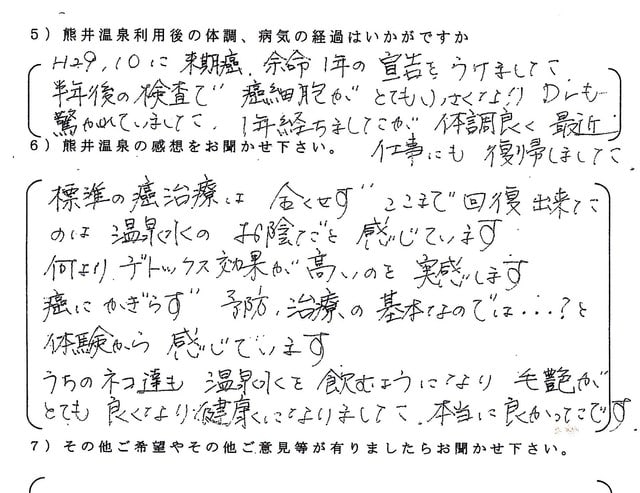 5）熊井温泉利用後の体調、病気の経過はいかがですか
H29,10に 末期癌、余命1年の 宣告を うけました
半年後の検査で 癌細胞が とても小さくなり Drも
驚かれていました、1年経ちましたが 体調良く 最近
仕事にも 復帰しました
6）熊井温泉の感想をお聞かせ下さい。
標準の癌治療は 全くせず ここまで回復出来た
のは 温泉水の お陰だと 感じています
何より デトックス効果が 高いのを 実感します
癌にかぎらず 予防、治療、の 基本なのでは・・・?と
体験から 感じています
うちのネコ達も 温泉水を 飲むようになり 毛艶が
とても 良くなり健康になりました、本当に良かったです
7）その他ご希望やその他ご意見等が有りましたらお聞かせ下さい。